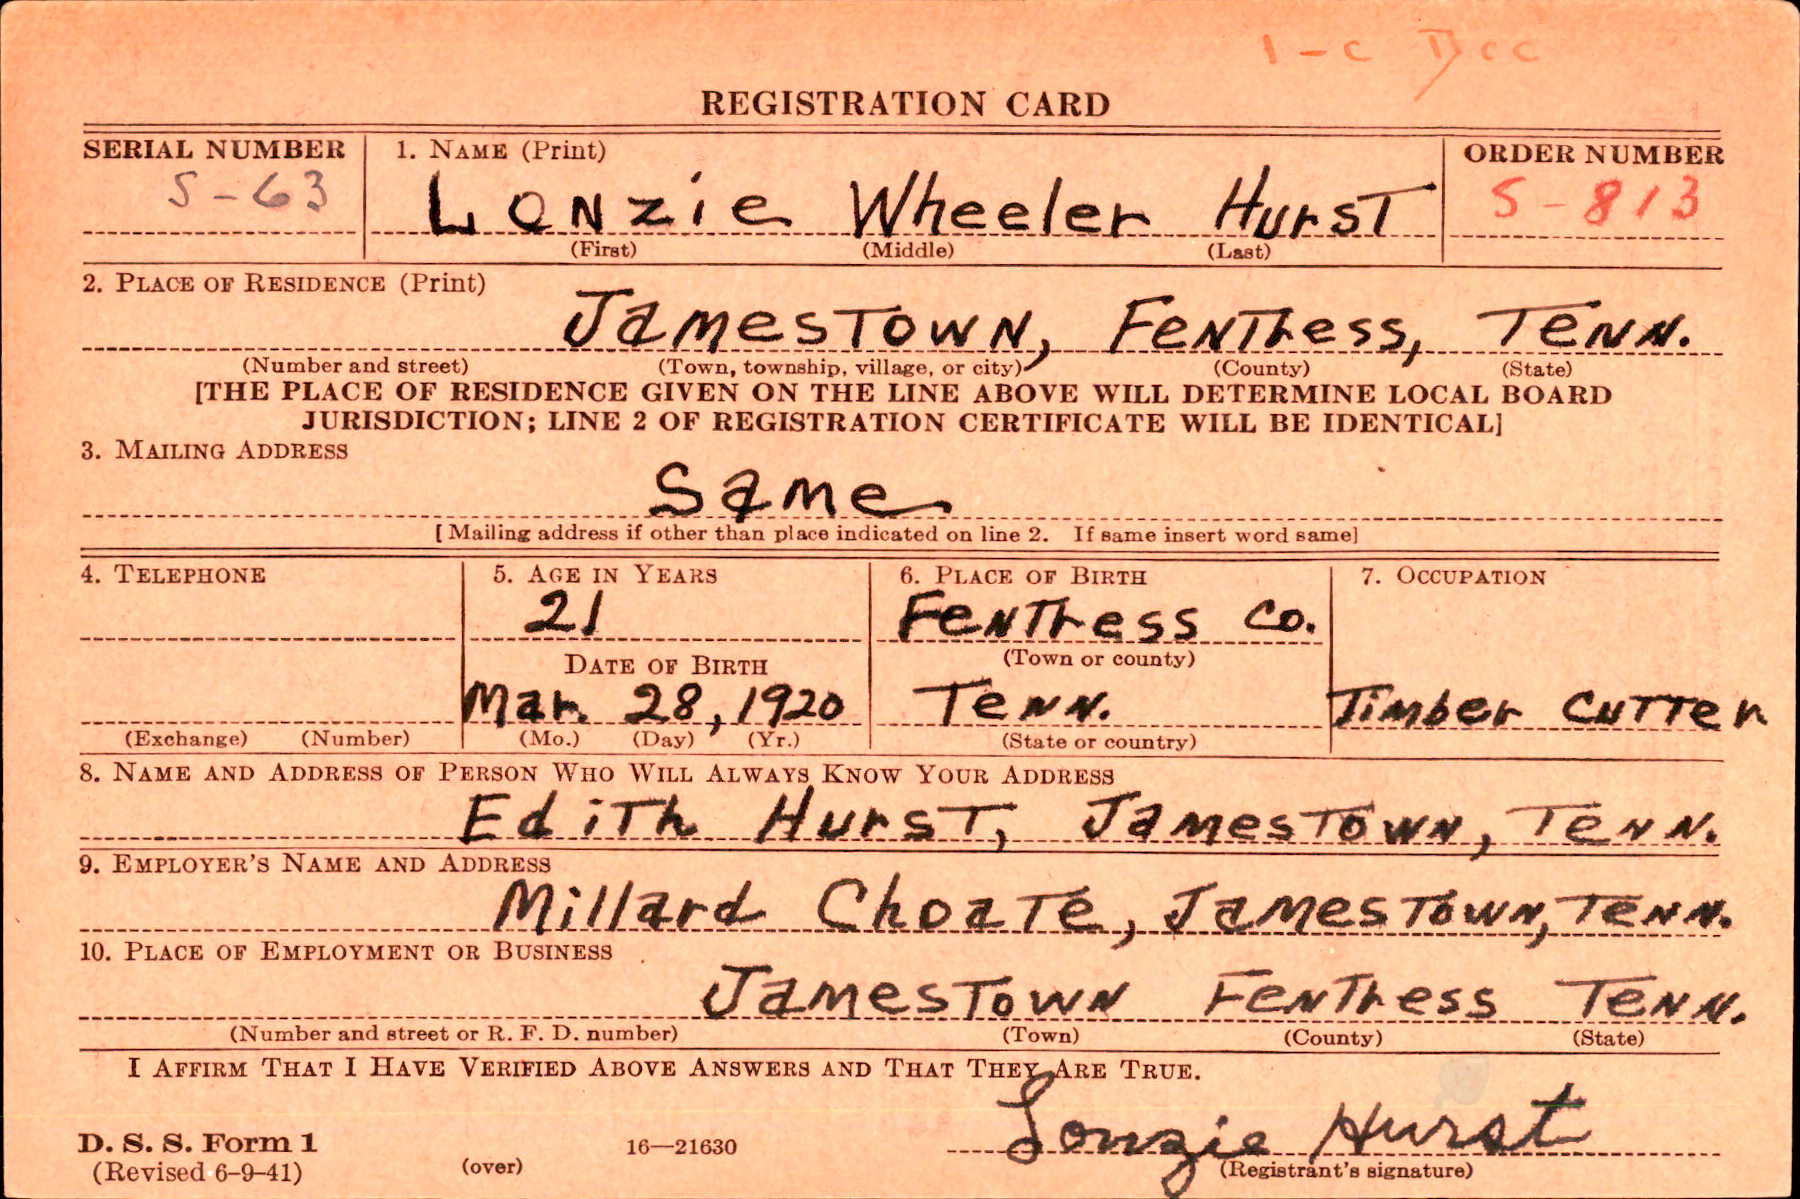 1-C Dec
REGISTRATION CARD
SERIAL NUMBER 1. NAME (Print) ORDER NUMBER
S-63 Lonzie Wheeler Hurst S-813
(First) (Middle) (Last)
2. PLACE OF RESIDENCE (Print)
Jamestown, Fentress, Tenn.
(Number and street) (Town, township, village, or city) (County) (State)
[THE PLACE OF RESIDENCE GIVEN ON THE LINE ABOVE WILL DETERMINE LOCAL BOARD
JURISDICTION; LINE 2 OF REGISTRATION CERTIFICATE WILL BE IDENTICAL]
3. MAILING ADDRESS
Same
[Mailing address if other than place indicated on line 2. If same insert word same]
4. TELEPHONE 5. AGE IN YEARS 6. PLACE OF BIRTH 7. OCCUPATION
21 Fentress Co.
DATE OF BIRTH (Town or county)
Mar. 28, 1920 Tenn. Timber Cutter
(Exchange) (Number) (Mo.) (Day) (Yr.) (State or country)
8. NAME AND ADDRESS OF PERSON WHO WILL ALWAYS KNOW YOUR ADDRESS
Edith Hurst, Jamestown, Tenn.
9. EMPLOYER'S NAME AND ADDRESS
Millard Choate, Jamestown, Tenn.
10. PLACE OF EMPLOYMENT OR BUSINESS
Jamestown Fentress Tenn.
(Number and street or R. F. D. number) (Town) (County) (State)
I AFFIRM THAT I HAVE VERIFIED ABOVE ANSWERS AND THAT THEY ARE TRUE.
Lonzie Hurst
D. S. S. Form 1 16—21630
(Revised 6-9-41) (over) (Registrant's signature)